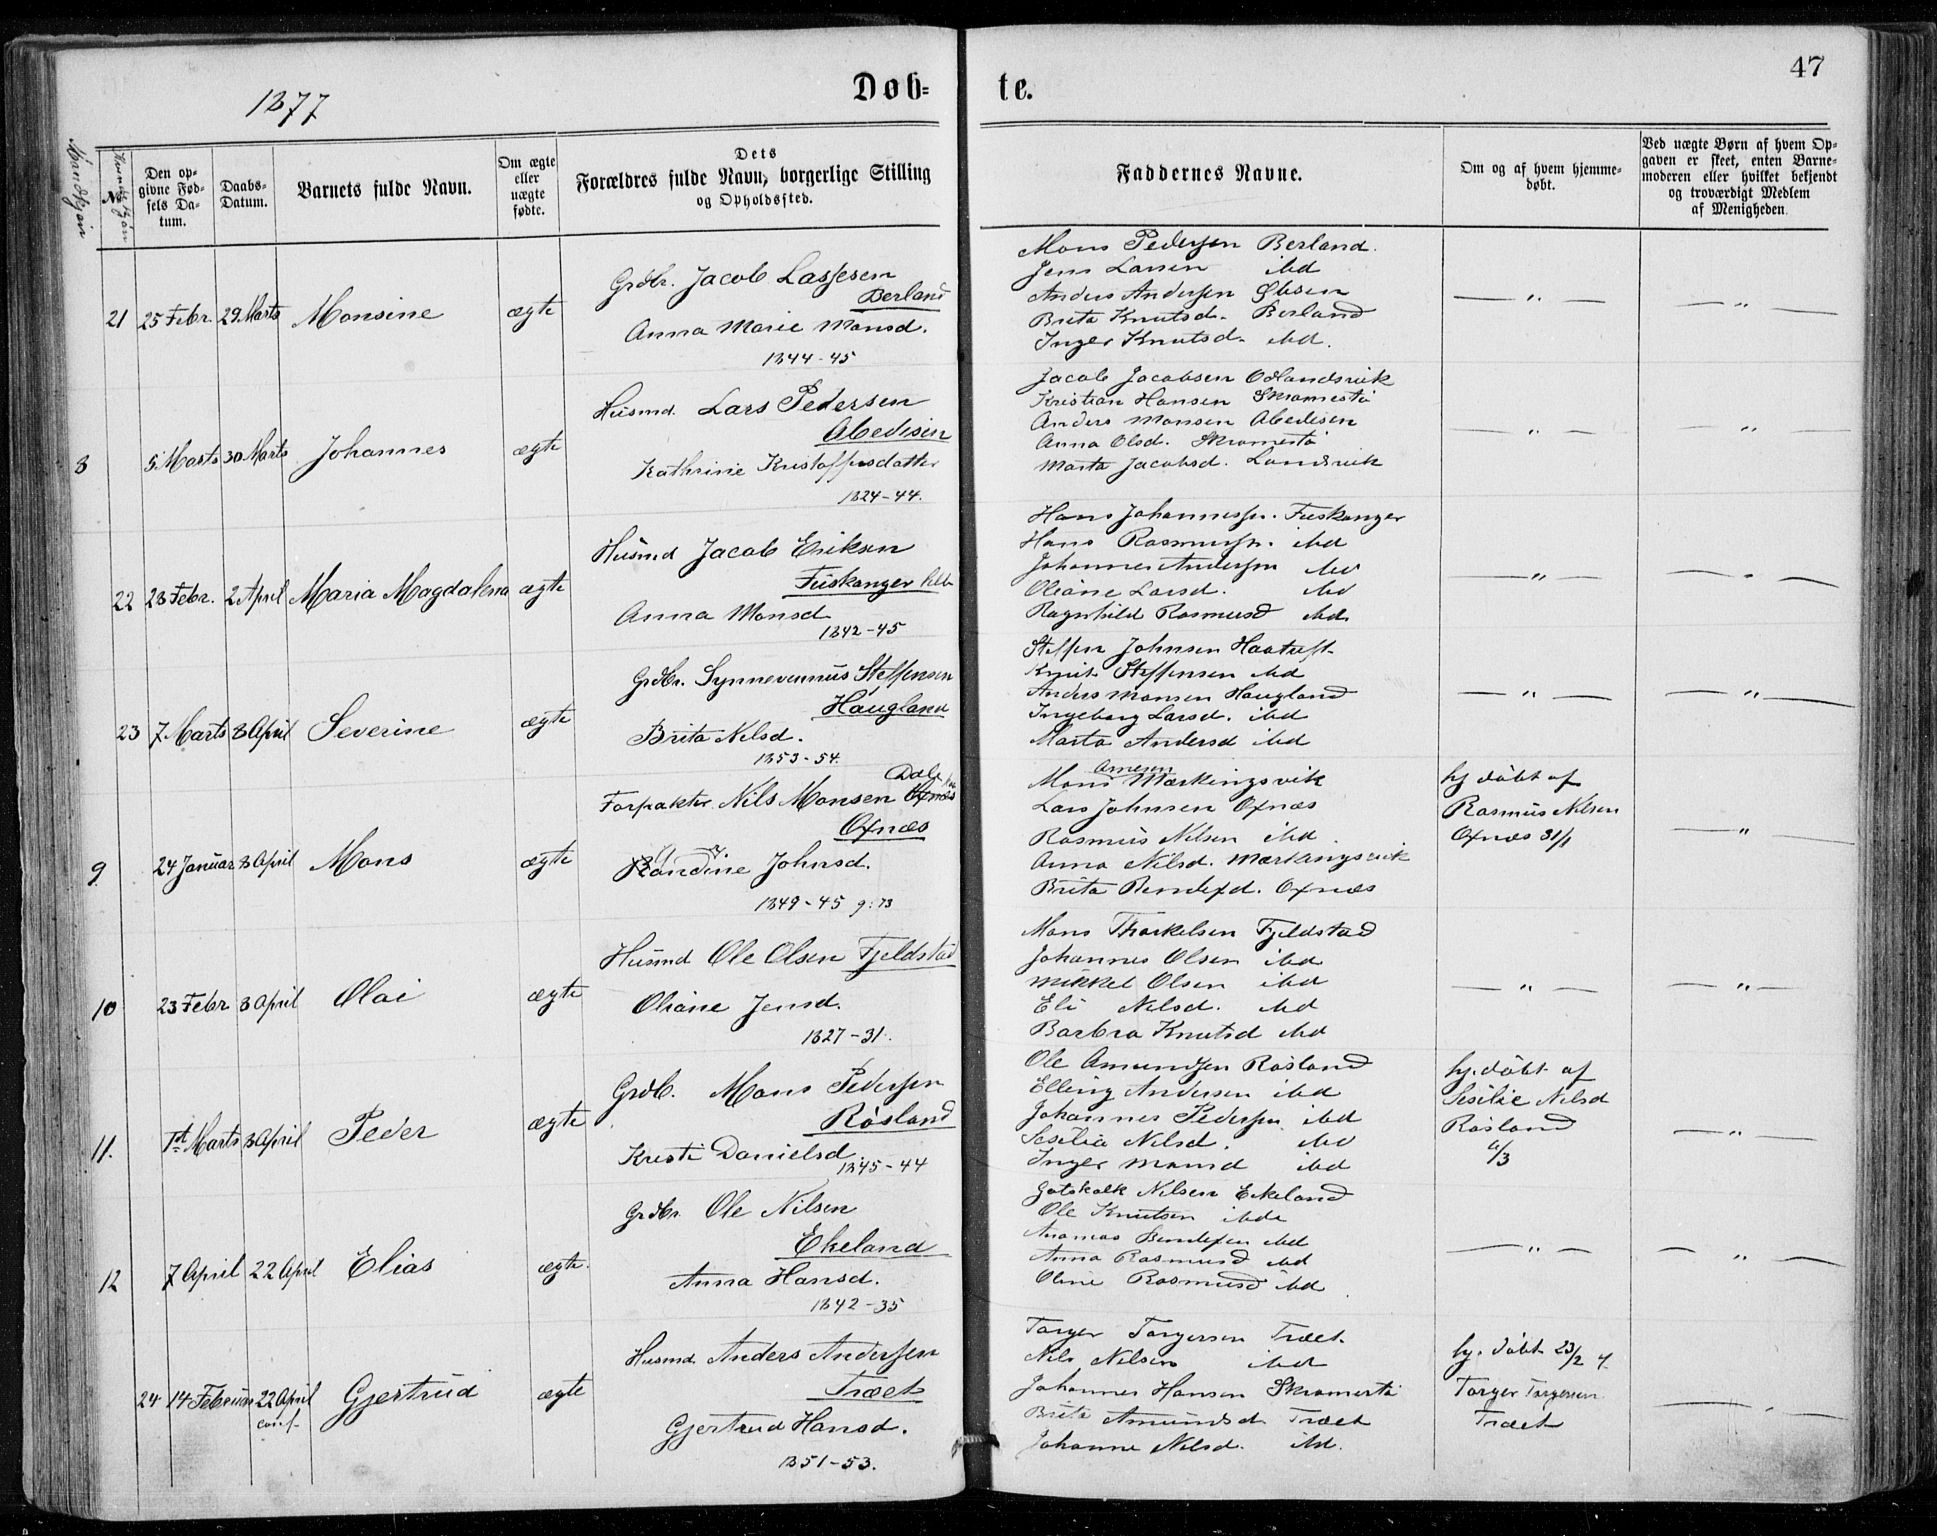 1877
Døb=
te.
47
Mandkjøn
Kvindekjøn
No.
Den op-
givne Fød-
sels Da-
tum.
Daabs-
Datum.
Barnets fulde Navn.
Om ægte
eller
uægte
fødte.
Dets
Forældres fulde Navn, borgerlige Stilling
og Opholdssted.
Faddernes Navne.
Om og af hvem hjemme-
døbt.
Ved uægte Børn af hvem Op-
gaven er skeet, enten Barne-
moderen eller hvilket bekjendt
og troværdigt Medlem
af Menigheden.
21 25 Febr. 29 Marts Monsine ægte
Grdbr. Jacob Lassesen
Berland
Anna Marie Monsd.
1844-45
Mons Pedersen Berland.
Jens Larsen ibd
Anders Andersen
Brita Knutsd. Berland
Inger Knutsd. ibd.
— " —
— " —
8 5 Marts 30 Marts Johannes ægte
Husmd. Lars Pedersen
Abedisen
Kathrine Kristoffersdatter
1824-44.
Jacob Jacobsen
Kristian Hansen Skromestø
Anders Monsen Abedisen
Anna Olsd. Skromestø
Marta Jacobsd. Landsvik
— " —
— " —
22 28 Febr. 2 April Maria Magdalena ægte
Husmd Jacob Eriksen
Fuskanger
Anna Monsd
1842-45
Hans Johannessn. Fuskanger
Hans Rasmussn. ibd
Johannes Andersen ibd
Oliane Larsd. ibd
Ragnhild Rasmusd ibd.
— " —
— " —
23 7 Marts 8 April Severine ægte
Grdbr. Synnevennus Steffensen
Haugland
Brita Nelsd.
1853-54.
Steffen Johnsen Haatuft
Knut Steffensen ibd
Anders Monsen Haugland
Ingeborg Larsd. ibd
Marta Andersd ibd
— " —
— " —
9. 24 Januar 8 April Mons ægte
Dale
Forpakter Nils Monsen Oxnæs
Oxnæs
Randine Johnsd.
1849-45 9:73
Arnesen
Mons Mærkingsvik
Lars Johnsen Oxnæs
Rasmus Nilsen ibd
Anna Nilsd. Mærkingsvik
Brita Bendixd. Oxnæs
hj døbt af
Rasmus Nilsen
Oxnæs 31/1
— " —
10 23 Febr 8 April Olai ægte
Husmd Ole Olsen Fjeldstad
Oliane Jensd.
1827-31.
Mons Thorkelsen Fjeldstad
Johannes Olsen ibd
Mikkel Olsen ibd
Eli Nelsd. ibd
Barbra Knutsd ibd
— " —
— " —
11. 1st Marts 8 April Peder ægte
Grdb. Mons Pedersen
Røsland
Kristi Danielsd.
1845-44
Ole Amundsen Røsland
Elling Andersen ibd
Johannes Pedersen ibd
Sesilia Nelsd. ibd
Inger Monsd ibd
hj. døbt af
Sesilie Nelsd
Røsland
4/3
— " —
12 7 April 22 April Elias ægte.
Grdbr. Ole Nilsen
Ekeland
Anna Hansd.
1842-35
Gotskalk Nilsen Ekeland
Ole Knutsen ibd
Thomas Bendixen ibd
Anna Rasmusd ibd
Oline Rasmusd ibd
— " —
— " —
24 14 Februar 22 April
conf.
Gjertrud ægte
Husmd. Anders Andersen
Træet
Gjertrud Hansd.
1851-53.
Torger Torgersen Træet
Nils Nilsen ibd
Johannes Hansen Skromestø
Brita Amundsd. Træet
Johanne Nilsd. ibd.
hj. døbt 23/2 af
Torger Torgersen
Træet
— " —